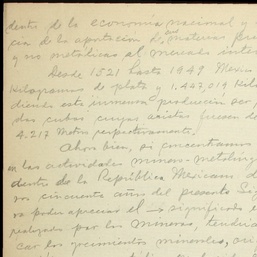 dentro de la economía nacional y
cia de la aportación de sus materias pri
y no metálicas al mercado inter
Desde 1521 hasta 1949 Méxi
kilogramos de plata y 1.447,819 Kilo
diendo esta inmensa producción ser
dos cubos cuyas aristas
4.217 Metros respectivamente.
Ahora bien, si concentramos
en las actividades minero-metalúrg
dentro de la República Mexicana d
ros cincuenta años del presente Sig
ra poder apreciar el significado
realizado por los mineros, tendría
car los yacimientos minerales,